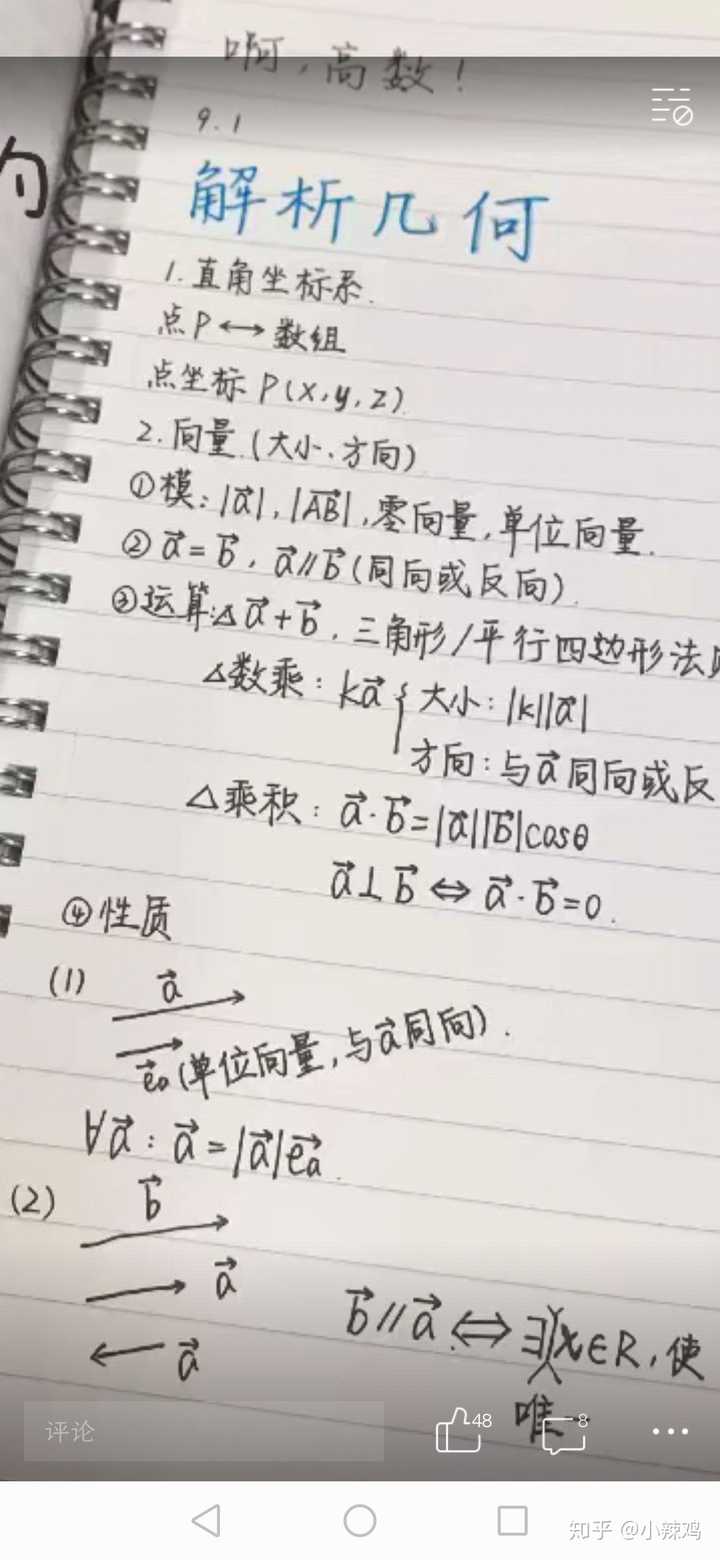 啊，高数！
9.1
解析几何
1.直角坐标系.
点P↔数组
点坐标 P(x,y,z).
2.向量.(大小、方向)
①模：|a⃗|，|AB⃗|，零向量，单位向量.
②a⃗=b⃗，a⃗∥b⃗(同向或反向).
③运算:△a⃗+b⃗，三角形/平行四边形法
△数乘：ka⃗{大小：|k||a⃗|
方向：与a⃗同向或反
△乘积：a⃗·b⃗=|a⃗||b⃗|cosθ
a⃗⊥b⃗⇔a⃗·b⃗=0.
④性质
(1) a⃗
e⃗a(单位向量，与a⃗同向).
∀a⃗：a⃗=|a⃗|e⃗a.
(2) b⃗
a⃗
a⃗
b⃗∥a⃗⇔∃x∈R，使
唯一
评论
48
8
知乎 @小辣鸡